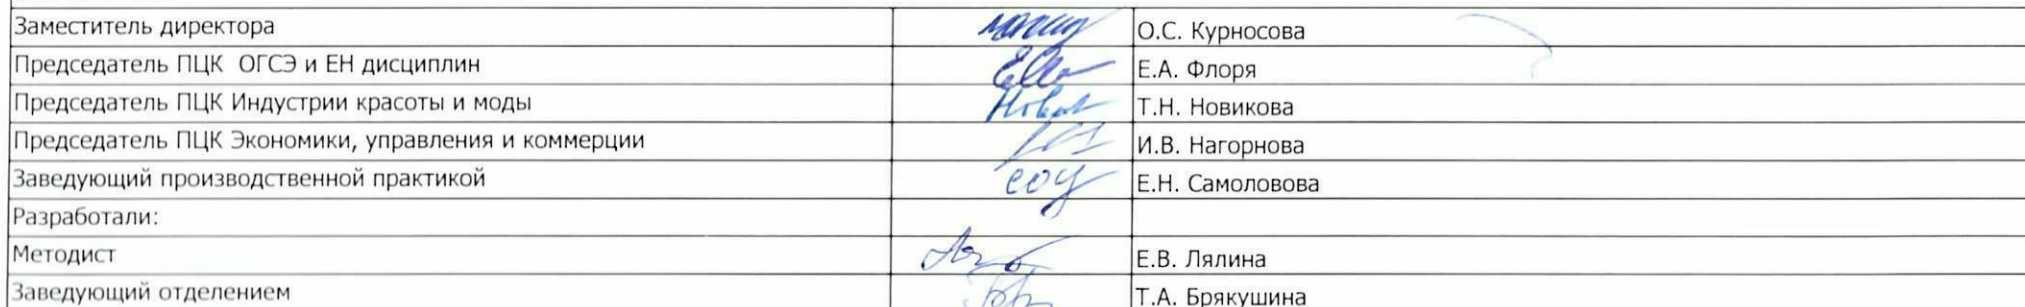 Заместитель директора О.С. Курносова
Председатель ПЦК ОГСЭ и ЕН дисциплин Е.А. Флоря
Председатель ПЦК Индустрии красоты и моды Т.Н. Новикова
Председатель ПЦК Экономики, управления и коммерции И.В. Нагорнова
Заведующий производственной практикой Е.Н. Самоловова
Разработали:
Методист Е.В. Лялина
Заведующий отделением Т.А. Брякушина